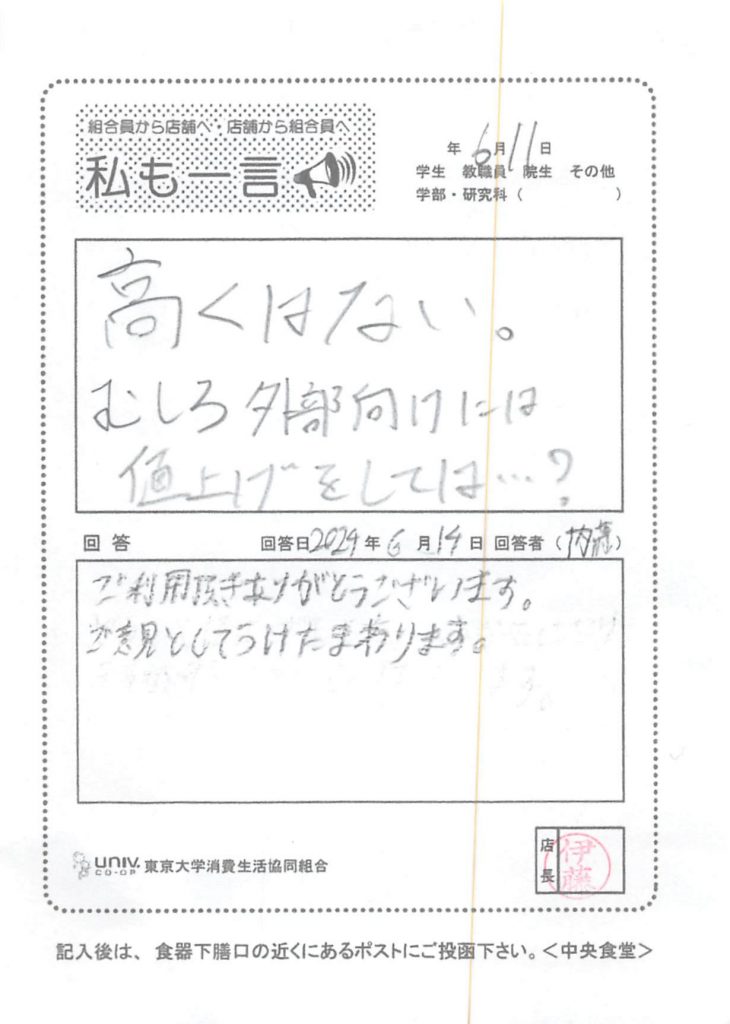 組合員から店舗へ・店舗から組合員へ
私も一言
年 6月 11日
学生 教職員 院生 その他
学部・研究科（ ）
高くはない。
むしろ外部向けには
値上げをしては…?
回答 回答日2024年 6月 14日 回答者（内藤）
ご利用頂きありがとうございます。
ご意見としてうけたまわります。
UNIV. CO-OP 東京大学消費生活協同組合
店長 伊藤
記入後は、食器下膳口の近くにあるポストにご投函下さい。＜中央食堂＞